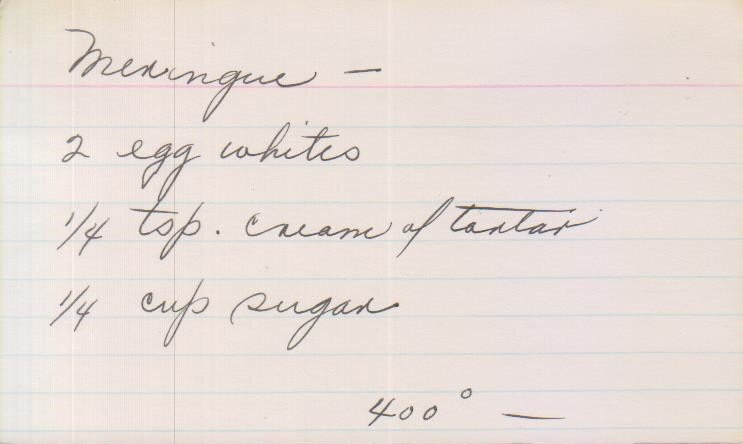 Meringue —
2 egg whites
1/4 tsp. cream of tartar
1/4 cup sugar
400° —